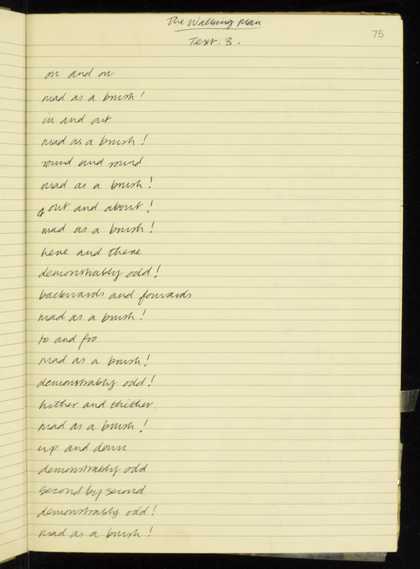 The Walking Man
Text. 3.
75
on and on
mad as a brush!
in and out
mad as a brush!
round and round
mad as a brush!
out and about!
mad as a brush!
here and there
demonstrably odd!
backwards and forwards
mad as a brush!
to and fro
mad as a brush!
demonstrably odd!
hither and thither.
mad as a brush!
up and down
demonstrably odd
second by second
demonstrably odd!
mad as a brush!